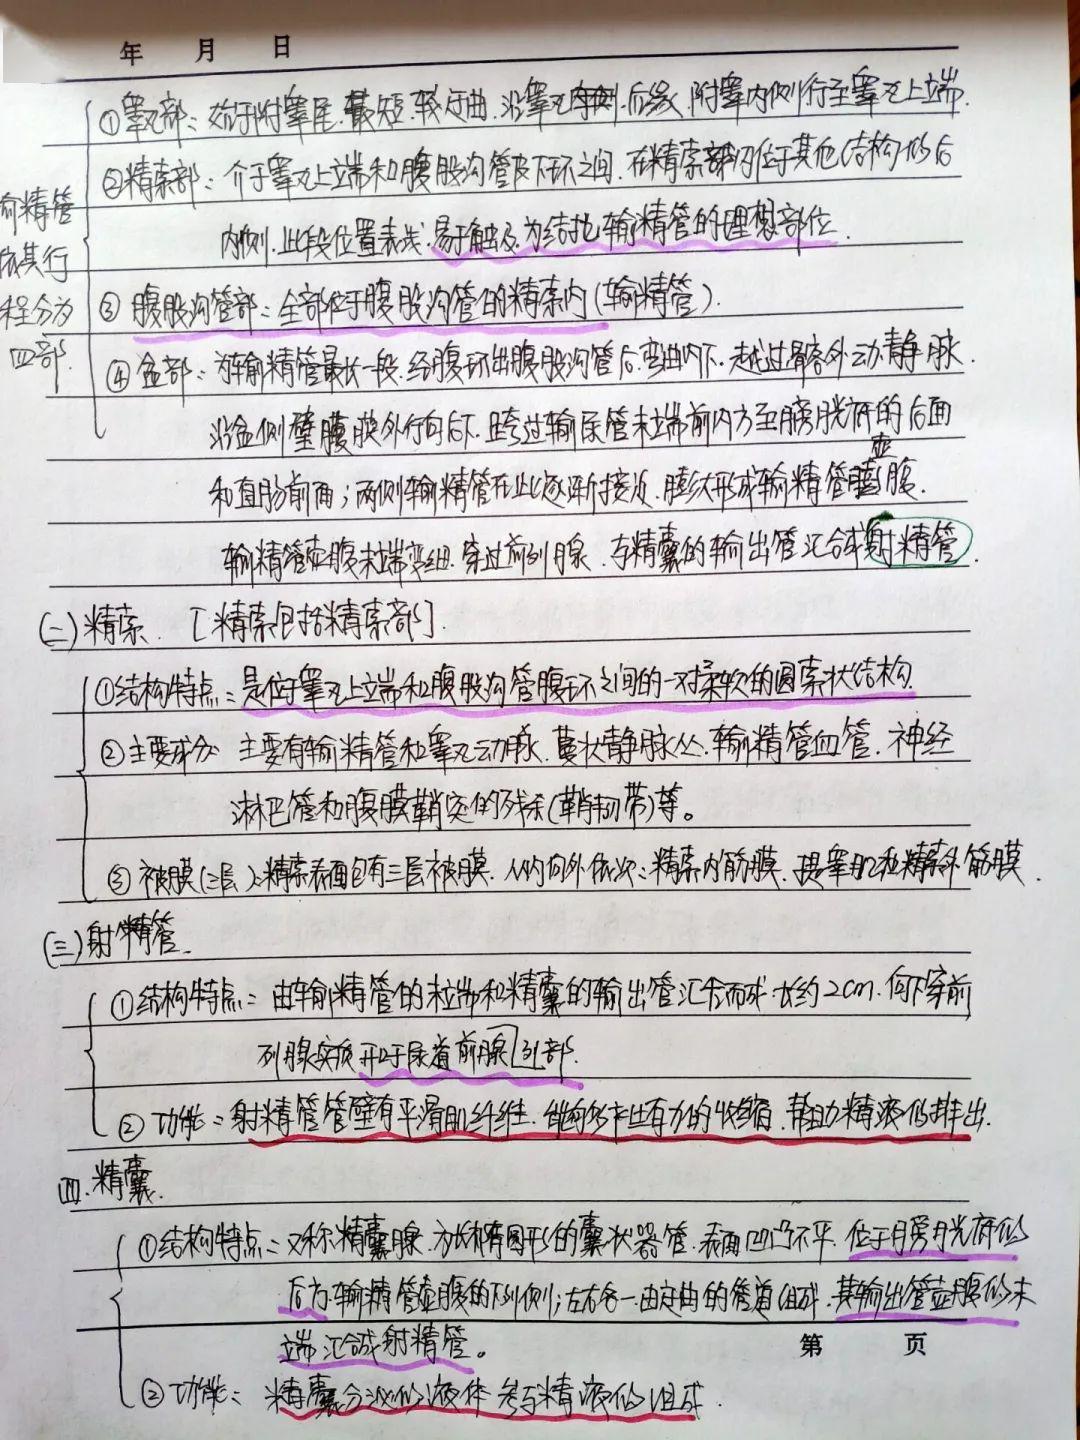 年 月 日
①睾丸部：始于附睾尾，最短，较迂曲，沿睾丸内侧后缘，附睾内侧行至睾丸上端.
②精索部：介于睾丸上端和腹股沟管皮下环之间，在精索部内位于其他结构的后
内侧.此段位置表浅，易于触及，为结扎输精管的理想部位.
输精管
依其行
程分为
四部.
③腹股沟管部：全部位于腹股沟管的精索内(输精管).
④盆部：为输精管最长一段.经腹环出腹股沟管后，弯曲内下，越过髂外动静脉.
沿盆侧壁腹膜外行向后下.跨过输尿管末端前内方至膀胱底的后面
和直肠前面；两侧输精管在此逐渐接近.膨大形成输精管壶腹.
输精管壶腹末端变细.穿过前列腺.与精囊的输出管汇合成射精管.
(二)精索.[精索包括精索部].
①结构特点：是位于睾丸上端和腹股沟管腹环之间的一对柔软的圆索状结构
②主要成分 主要有输精管和睾丸动脉.蔓状静脉丛.输精管血管.神经
淋巴管和腹膜鞘突的残余(鞘韧带)等。
③被膜(三层)：精索表面包有三层被膜.从内向外依次：精索内筋膜.提睾肌和精索外筋膜.
(三)射精管
①结构特点：由输精管的末端和精囊的输出管汇合而成.长约2cm.向下穿前
列腺实质开口于尿道前腺列部.
②功能：射精管管壁有平滑肌纤维.能够产生有力的收缩.帮助精液的排出.
四.精囊.
①结构特点：又称精囊腺.为长椭圆形的囊状器管.表面凹凸不平.位于膀胱底的
后方.输精管壶腹的下外侧；左右各一由迂曲的管道组成.其输出管壶腹的末
端汇合成射精管。
第 页
②功能：精囊分泌的液体参与精液的组成.